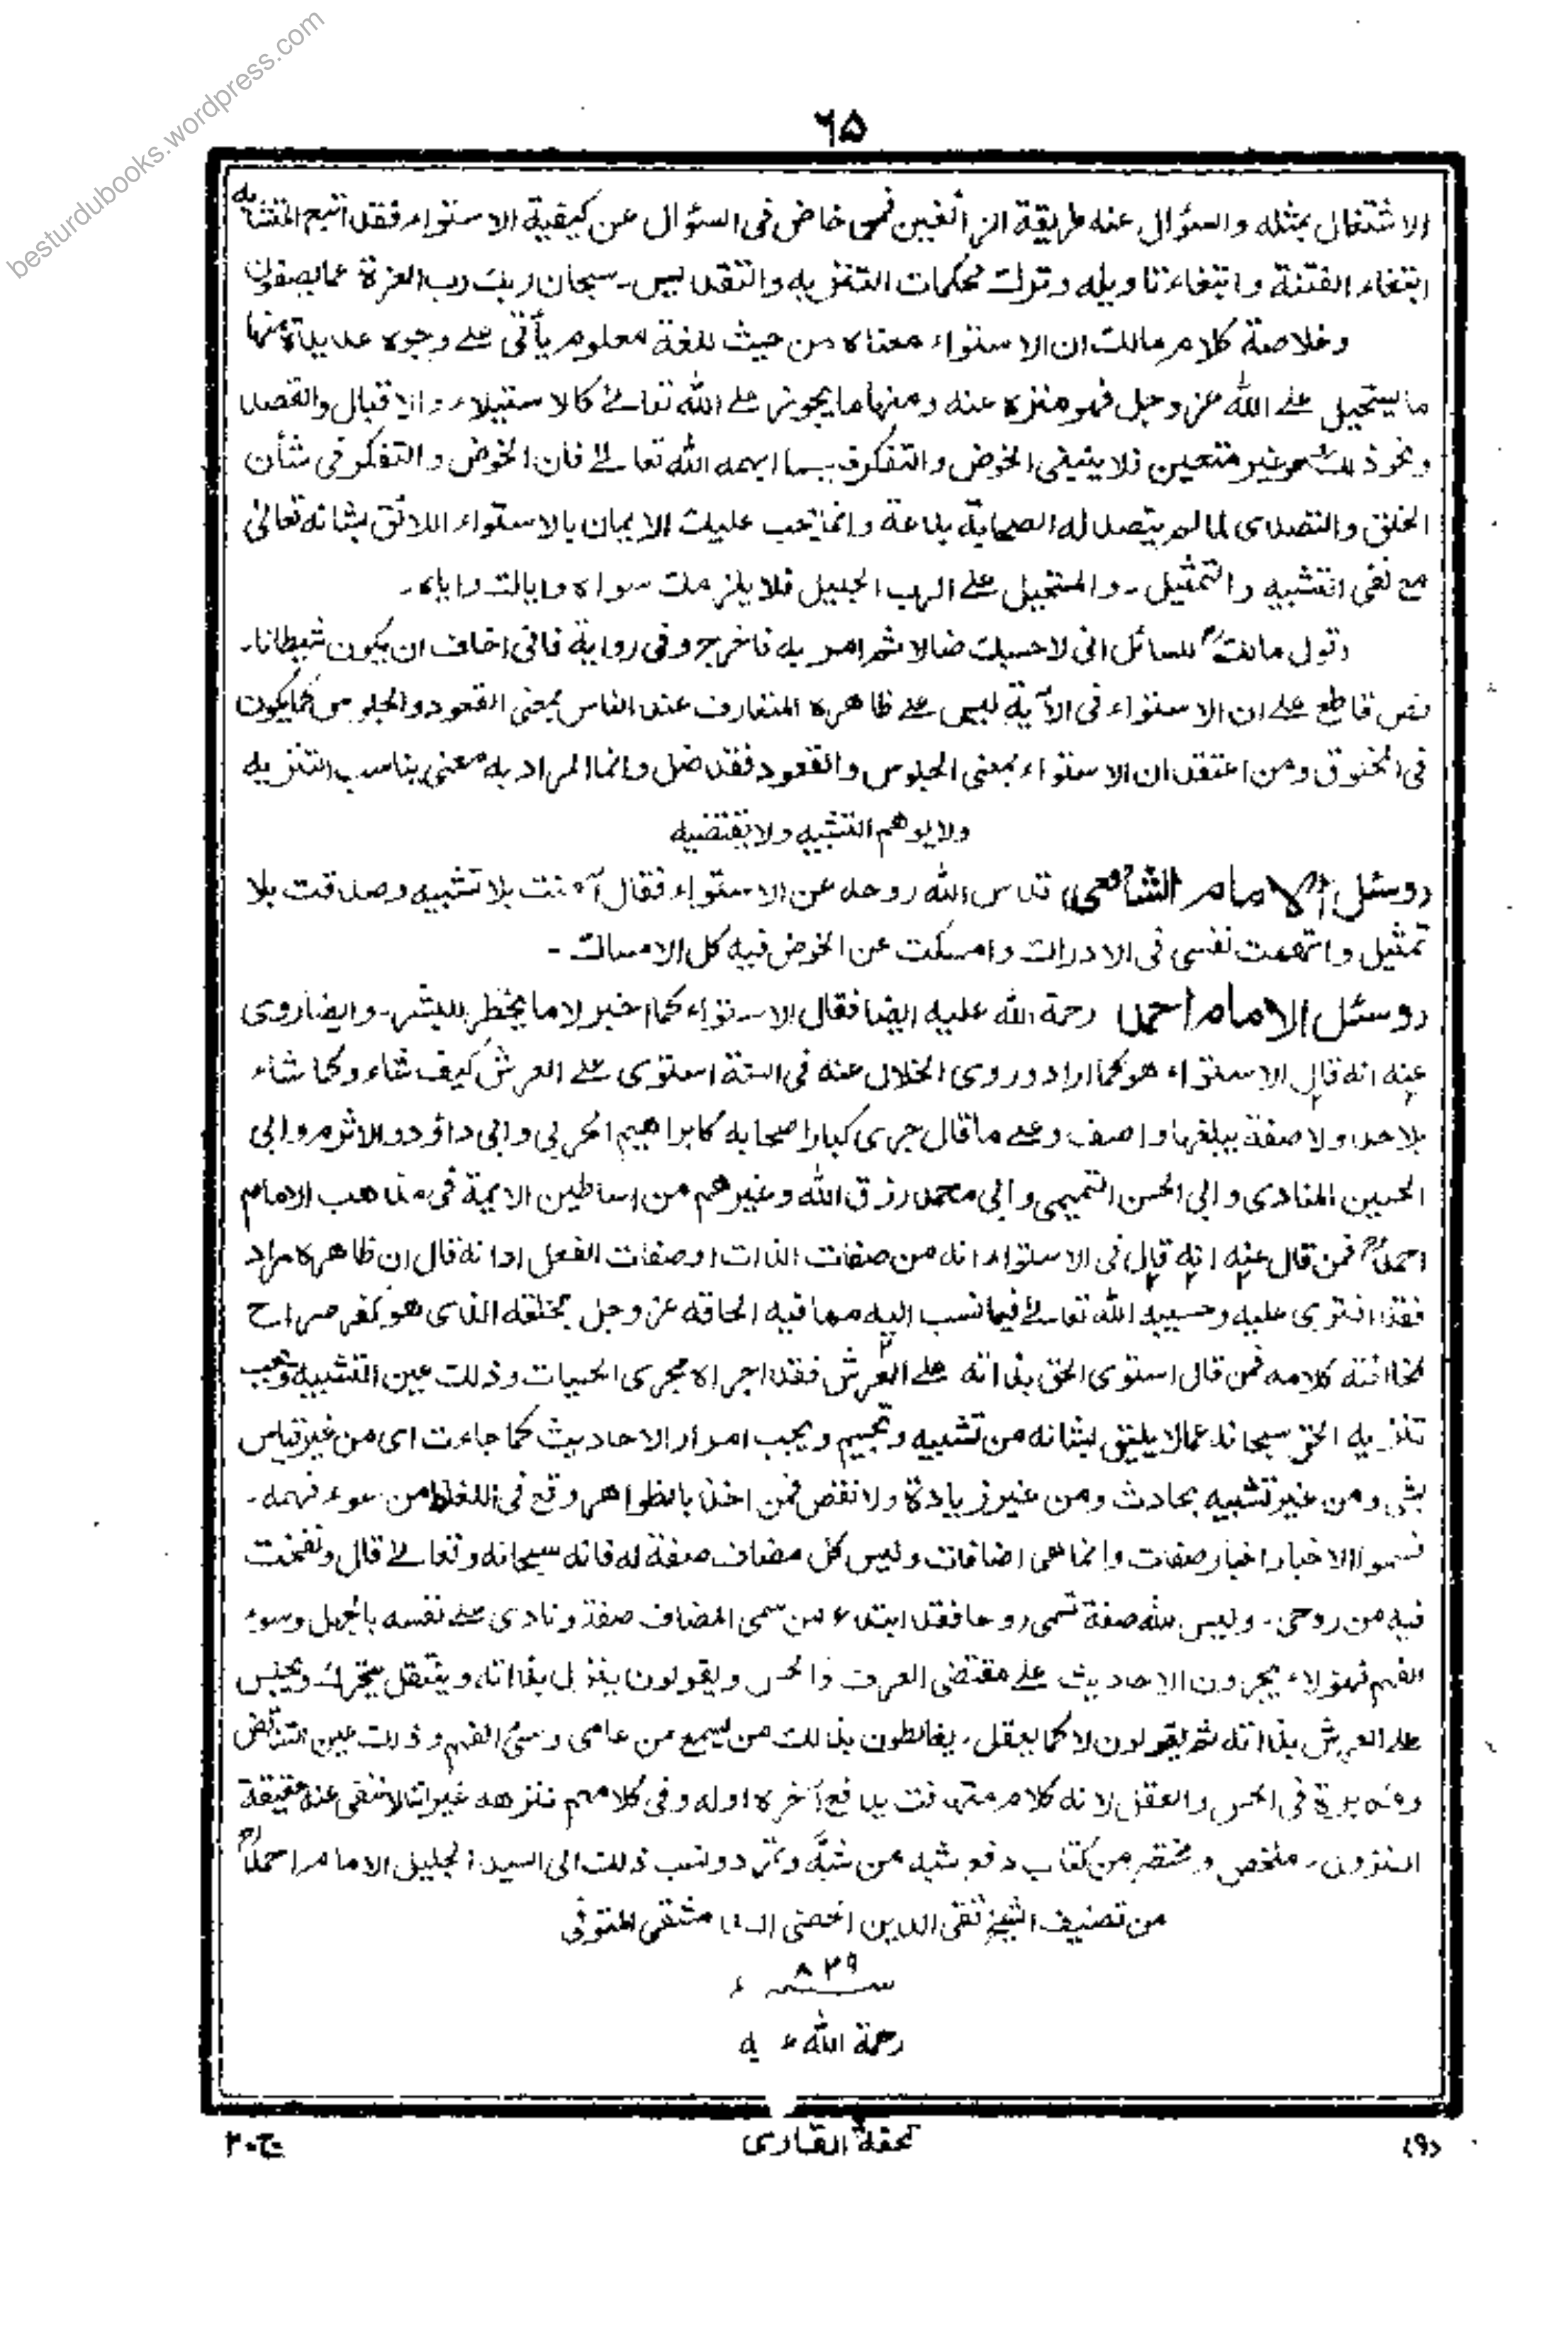 besturdubooks.wordpress.com
٦٥
الاشتغال بمثله والسؤال عنه طريقة الزائغين فمن خاض فى السؤال عن كيفية الاستواء فقد اتبع المتشابه
ابتغاء الفتنة وابتغاء تاويله وترك محكمات التنزيه والتقديس۔ سبحان ربك رب العزة عما يصفون
وخلاصة كلام مالك ان الاستواء معناه من حيث اللغة معلوم يأتى على وجوه عديدة منها
ما يستحيل على الله عز وجل فهو منزه عنه ومنها ما يجوز على الله تعالى كالاستيلاء والاقبال والقصد
ونحو ذلك وهو غير متعين فلا ينبغى الخوض والتفكر فيما ابهمه الله تعالى فان الخوض والتفكر فى شأن
الخالق والتصدى لما لم يتصد له الصحابة بدعة وانما يجب عليك الايمان بالاستواء اللائق بشانه تعالى
مع نفى التشبيه والتمثيل۔ والمستحيل على الرب الجليل فلا يلزمك سواه واياك واياه۔
وقول مالك للسائل انى لاحسبك ضالا ثم امر به فاخرج وفى رواية فانى اخاف ان يكون شيطانا۔
نص قاطع على ان الاستواء فى الآية ليس على ظاهره المتعارف عند الناس بمعنى القعود والجلوس كما يكون
فى المخلوق ومن اعتقد ان الاستواء بمعنى الجلوس والقعود فقد ضل وانما المراد به معنى يناسب التنزيه
ولا يوهم التشبيه ولا يقتضيه
(وسئل الامام الشافعى) قدس الله روحه عن الاستواء فقال آمنت بلا تشبيه وصدقت بلا
تمثيل واتهمت نفسى فى الادراك وامسكت عن الخوض فيه كل الامساك۔
(وسئل الامام احمد رحمة الله عليه ايضا فقال الاستواء كما اخبر لا ما يخطر للبشر۔ وايضا روى
عنه انه قال الاستواء هو كما اراد وروى الخلال عنه فى السنة استوى على العرش كيف شاء وكما شاء
بلا حد ولا صفة يبلغها واصف وعلى ما قال جرى كبار اصحابه كابراهيم الحربى وابى داؤد والاثرم وابى
الحسين المنادى وابى الحسن التميمى وابى محمد رزق الله وغيرهم من اساطين الايمة فى مذاهب الامام
احمدؒ فمن قال عنه انه قال فى الاستواء انه من صفات الذات او صفات الفعل او انه قال ان ظاهره مراد
فقد افترى عليه وحسيبه الله تعالى فيما نسب اليه مما فيه الحاقه عز وجل بخلقه الذى هو كفر صراح
لمخالفته كلامه فمن قال استوى الحق بذاته على العرش فقد اجراه مجرى الحسيات وذلك عين التشبيه ويجب
تنزيه الحق سبحانه عما لا يليق بشانه من تشبيه وتجسيم ويجب امرار الاحاديث كما جاءت اى من غير قياس
بشى ومن غير تشبيه بحادث ومن غير زيادة ولا نقص فمن اخذ بالظواهر وقع فى الغلط من سوء فهمه۔
فسموا الاخبار اخبار صفات وانما هى اضافات وليس كل مضاف صفة له فانه سبحانه وتعالى قال ونفخت
فيه من روحى۔ وليس لله صفة تسمى روحا فقد ابتدع من سمى المضاف صفة ونادى على نفسه بالجهل وسوء
الفهم فهؤلاء يجرون الاحاديث على مقتضى العرف والحس ويقولون ينزل بذاته وينتقل ويتحرك ويجلس
على العرش بذاته ثم يقولون لا كما يعقل۔ يغالطون بذلك من يسمع من عامى وسئ الفهم وذلك عين التناقض
ومكابرة فى الحس والعقل لانه كلام متهافت يدافع آخره اوله وفى كلامهم ننزهه غير انا لا ننفى عنه حقيقة
النزول۔ ملخص ومختصر من كتاب دفع شبه من شبّه وتمرد ونسب ذلك الى السيد الجليل الامام احمدؒ
من تصنيف الشيخ تقى الدين الحصنى الدمشقى المتوفى
سنه ٨٢٩ ء
رحمة الله عليه
(٩) تحفة القارى ج۔٢٠